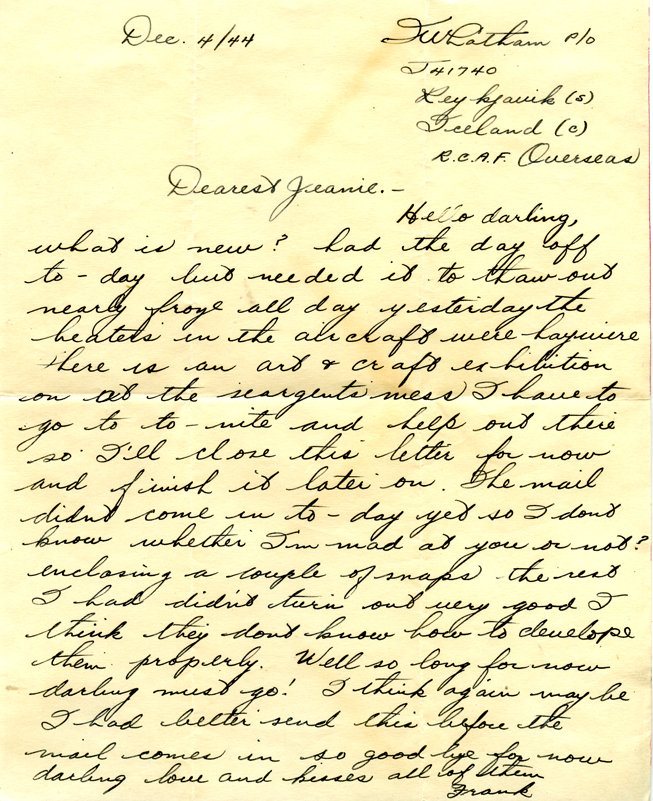 Dec. 4/44
FW Latham P/O
J41740
Reykjavik (S)
Iceland (C)
R.C.A.F. Overseas
Dearest Jeanie.-
Hello darling,
what is new? had the day off
to-day but needed it to thaw out
nearly froze all day yesterday the
heaters in the aircraft were haywire
there is an art & craft exhibition
on at the seargents mess I have to
go to to-nite and help out there
so I'll close this letter for now
and finish it later on. The mail
didnt come in to-day yet so I dont
know whether I'm mad at you or not?
enclosing a couple of snaps the rest
I had didn't turn out very good I
think they dont know how to develope
them properly. Well so long for now
darling must go! I think again maybe
I had better send this before the
mail comes in so good bye for now
darling love and kisses all of them
Frank